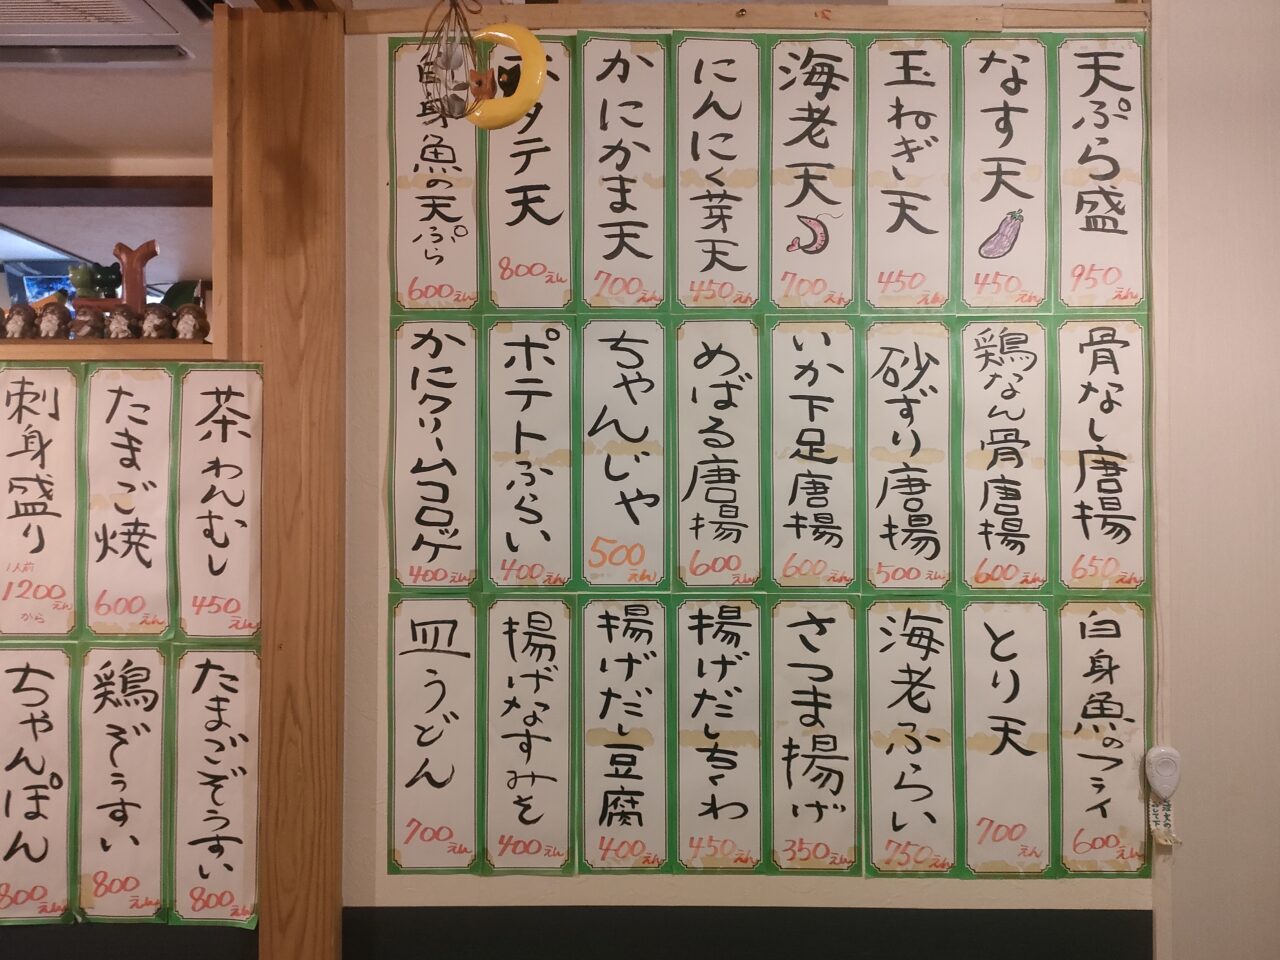 天ぷら盛
950えん
なす天
450えん
玉ねぎ天
450えん
海老天
700えん
にんにく芽天
450えん
かにかま天
700えん
ホタテ天
800えん
白身魚の天ぷら
600えん
骨なし唐揚
650えん
鶏なん骨唐揚
600えん
砂ずり唐揚
500えん
いか下足唐揚
600えん
めばる唐揚
600えん
ちゃんじゃ
500えん
ポテトふらい
400えん
かにクリームコロッケ
400えん
白身魚のフライ
600えん
とり天
700えん
海老ふらい
750えん
さつま揚げ
350えん
揚げだしちくわ
450えん
揚げだし豆腐
400えん
揚げなすみそ
400えん
皿うどん
700えん
茶わんむし
450えん
たまご焼
600えん
刺身盛り
1人前
1200えん
から
たまごぞうすい
800えん
鶏ぞうすい
800えん
ちゃんぽん
800えん